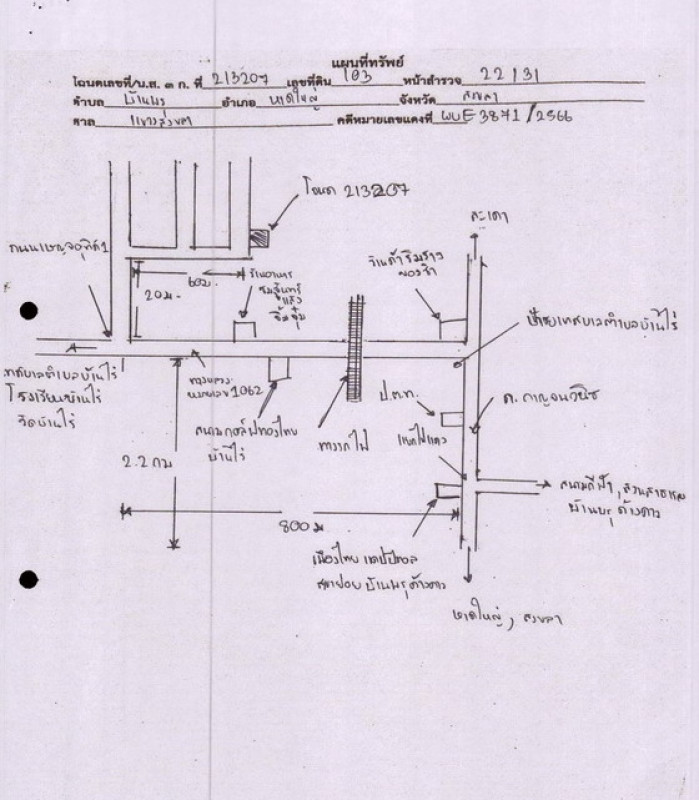 แผนที่ทรัพย์
โฉนดเลขที่/น.ส. ๓ ก. ที่ 213207 เลขที่ดิน 103 หน้าสำรวจ 22131
ตำบล บ้านพรุ อำเภอ หาดใหญ่ จังหวัด สงขลา
ศาล แขวงสงขลา คดีหมายเลขแดงที่ ผบE 3871/2566
โฉนด 213207
สะเดา
ถนนเบญจอุทิศ1
ร้านอาหาร
60ม.
20ม.
ป้ายเทศบาลตำบลบ้านไร่
เทศบาลตำบลบ้านไร่
โรงเรียนบ้านไร่
วัดบ้านไร่
ทางหลวง
หมายเลข 1062
สนามกอล์ฟทองใหญ่
บ้านไร่
ทางรถไฟ
ป.ต.ท.
แยกไฟแดง
ถ. กาญจนวนิช
2.2 กม
สนามกีฬา, สวนสาธารณะ
บ้านพรุค้างดาว
800 ม
เมืองไทย แคปปิตอล
สาขาย่อย บ้านพรุค้างดาว
หาดใหญ่, สงขลา